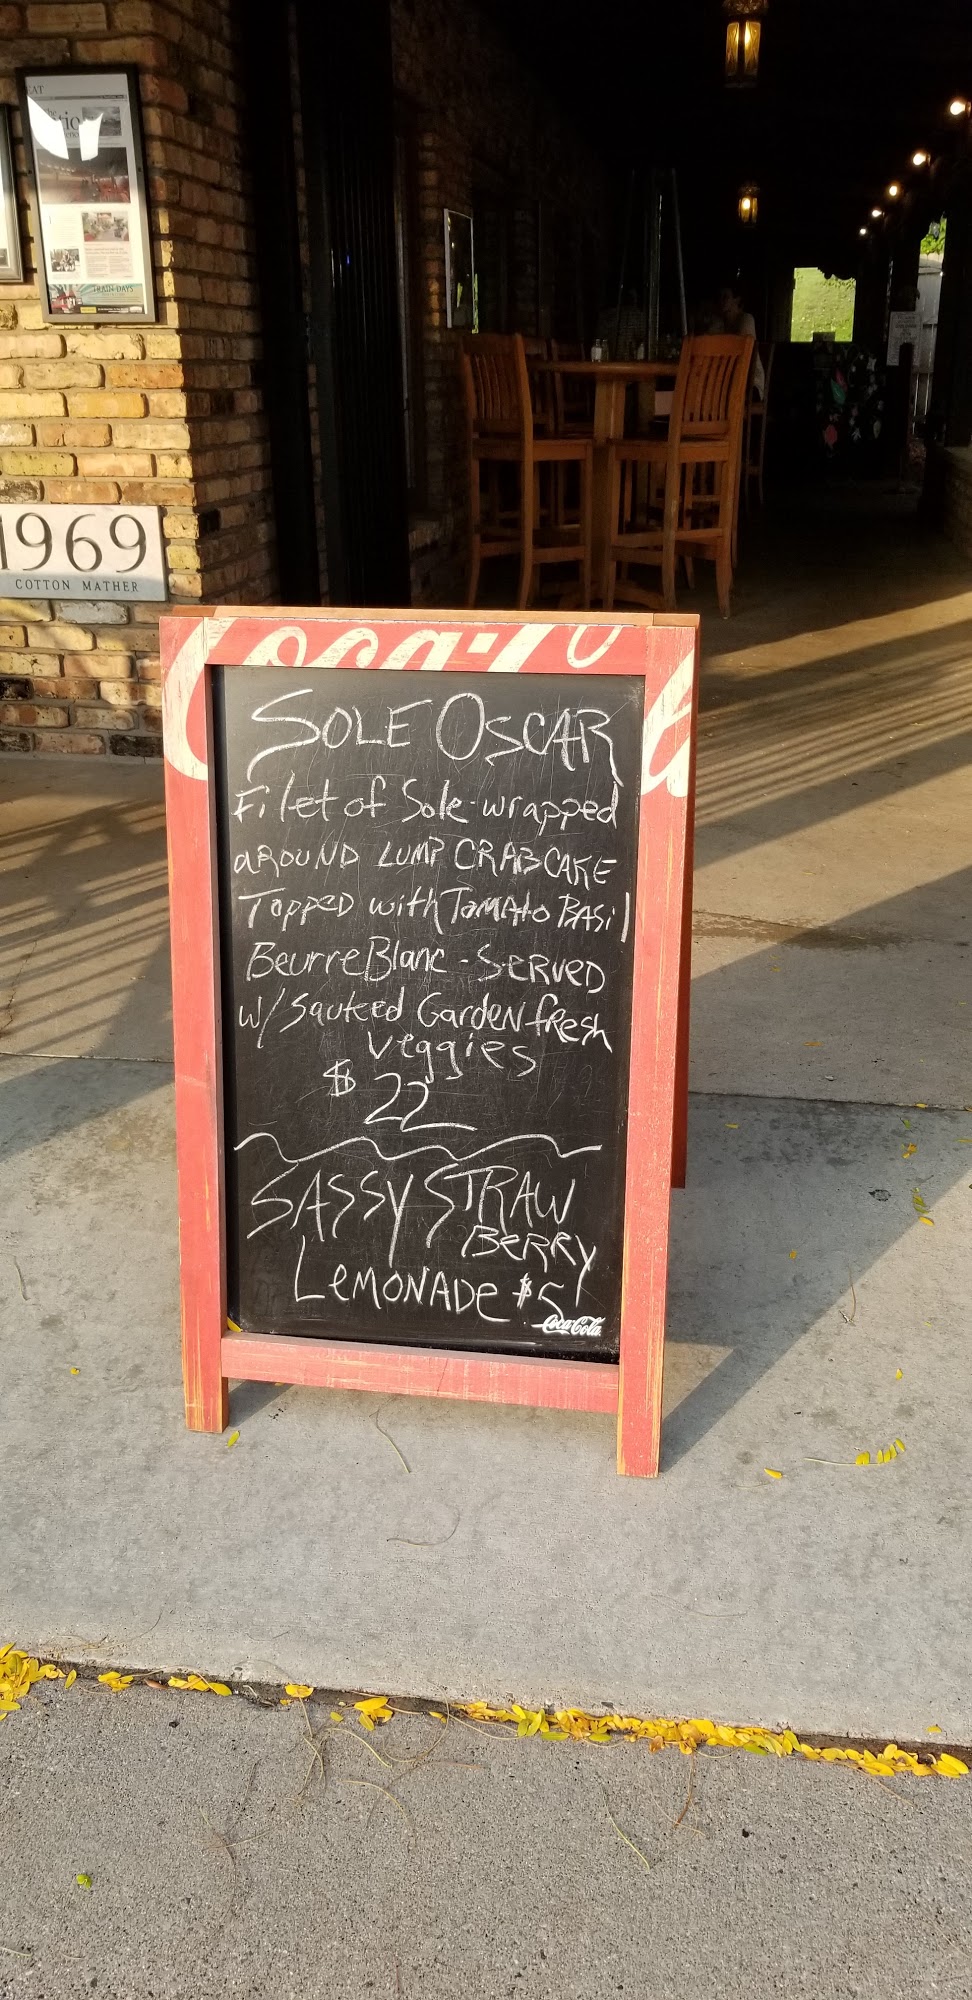 EAT
TRAIN DAYS
1969
COTTON MATHER
Coca-Cola
SOLE OSCAR
Filet of Sole - wrapped
aROUND LUMP CRABCAKE
TOPPED with TOMATO BASil
BeurreBlanc - SERVED
w/ Sauteed GardeN fresh
veggies
$ 22
SASSY STRAW
BERRY
LeMONADe $5
Coca-Cola